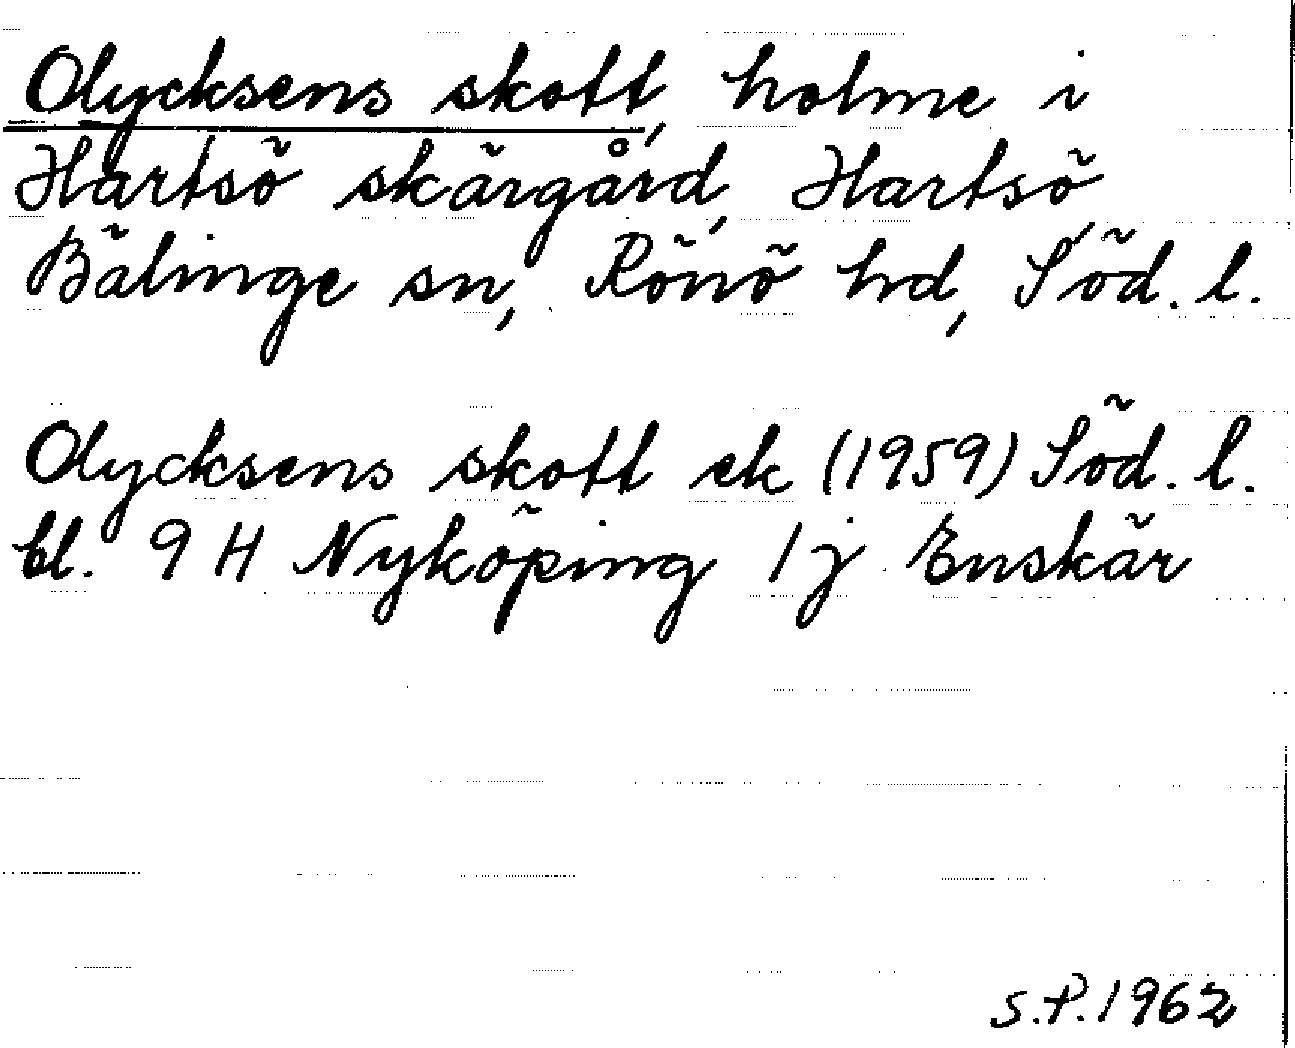 Olycksens skott, holme i
Hartsö skärgård, Hartsö,
Bälinge sn, Rönö hd, Söd. l.
Olycksens skott ek (1959) Söd. l.
bl. 9 H Nyköping 1 j Enskär
S.P. 1962